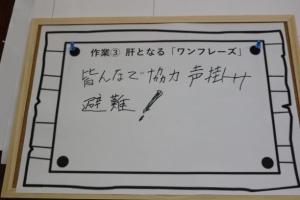 作業③ 肝となる「ワンフレーズ」
皆んなで協力 声掛け
避難!